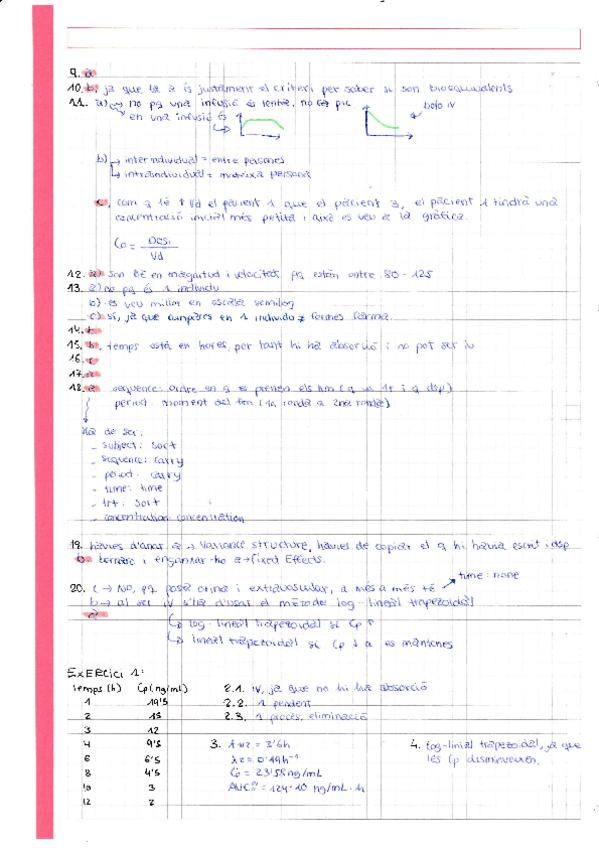 9. a
10. b, ja que la a és justament el criteri per saber si son bioequivalents
11. a) no pq una infusió és lenta, no fa pic
en una infusió és
bolo IV
b) interindividual = entre persones
intraindividual = mateixa persona
c, com q té ↑ Vd el pacient 1 que el pacient 3, el pacient 1 tindrà una
concentració inicial més petita i això es veu a la gràfica.
C0 = Dosi / Vd
12. a) son BE en magnitud i velocitat pq estan entre 80-125
13. a) no pq és 1 individu
b) es veu millor en escala semilog
c) sí, ja que compares en 1 individu ≠ formes farma.
14.
15. b, temps està en hores, per tant hi ha absorció i no pot ser iv
16. c
17. a
18. a sequence: ordre en q es prenen els
period: moment del (1a ronda a 2na ronda)
Ha de ser:
- subject: sort
- sequence: carry
- period: carry
- time: time
- trt: sort
- concentration: concentration
19. havies d'anar a → Variance structure, havies de copiar el q hi havia escrit i dsp
b tornar i enganxar-ho a → fixed Effects.
20. c → NO, pq posa orina i extravascular, a més a més té
time: none
b → al ser IV s'ha d'usar el mètode log-lineal trapezoidal
a
log-lineal trapezoidal si Cp ↑
lineal trapezoidal si Cp ↓ a es mantenes
EXERCICI 1:
temps (h) Cp (ng/mL)
1 19'5
2 15
3 12
4 9'5
6 6'5
8 4'5
10 3
12 2
2.1. IV, ja que no hi ha absorció
2.2. 1 pendent
2.3. 1 procés, eliminació
3. = 3'6h
λz = 0'19h⁻¹
C0 = 23'58 ng/mL
= 124'10 ng/mL · h
4. log-linial trapezoidal, ja que
les Cp disminueixen.